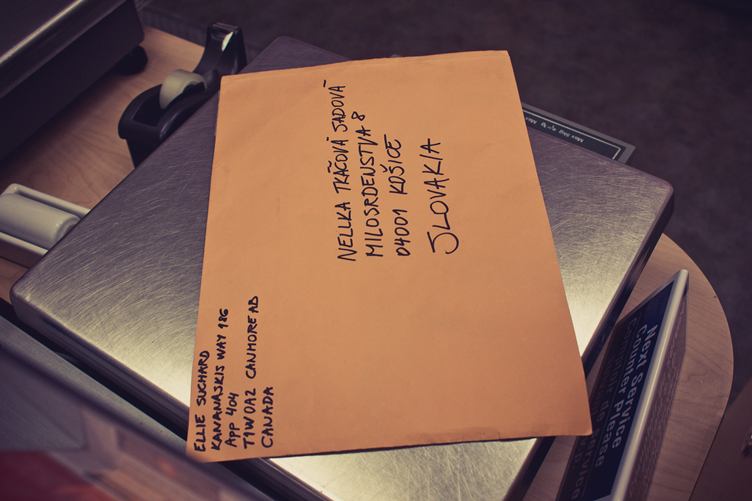 NELLKA TKÁČOVÁ SADOVÁ
MILOSRDENSTVA 8
04001 KOŠICE
SLOVAKIA
ELLIE SUCHARD
KANANASKIS WAY 186
APP 404
T1W0A2 CANMORE AB
CANADA
Next Service
Counter Please